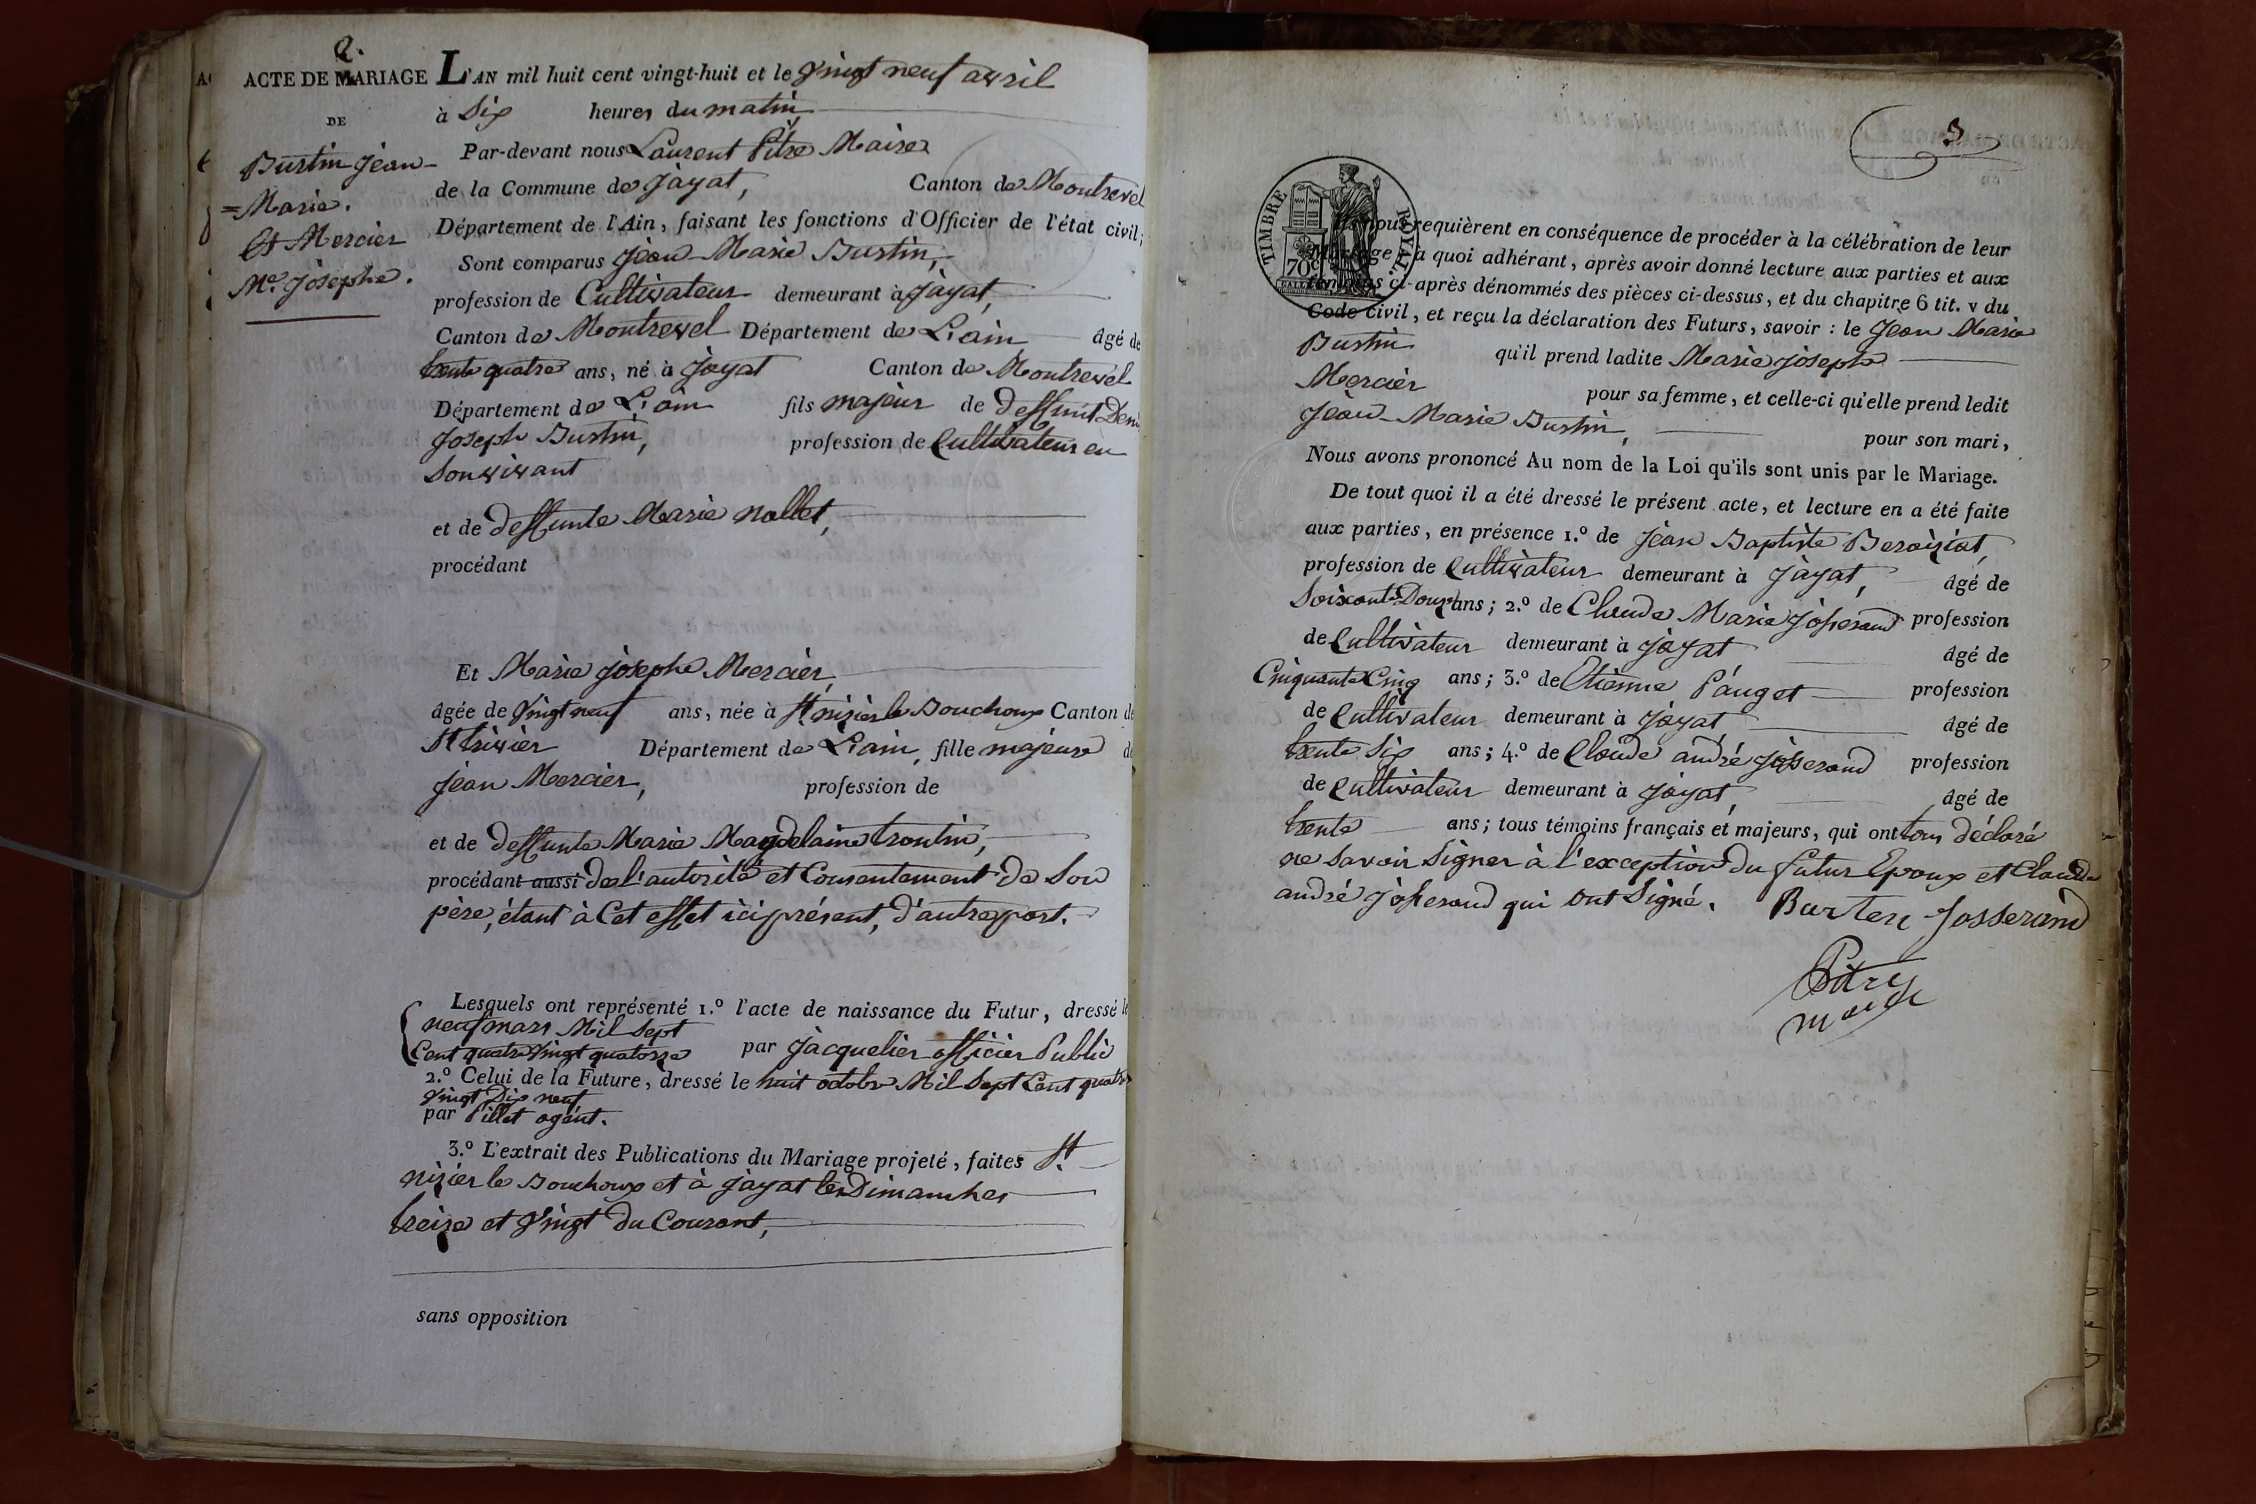 2.
ACTE DE MARIAGE
DE
Burtin jean
=Marie.
Et Mercier
Me. josephe.
L'AN mil huit cent vingt-huit et le vingt neuf avril
à Six heures du matin
Par-devant nous Laurent Pitre Maire
de la Commune de jayat, Canton de Montrevel
Département de l'Ain, faisant les fonctions d'Officier de l'état civil;
Sont comparus jean-Marie Burtin,
profession de Cultivateur demeurant à jayat,
Canton de Montrevel Département de L'ain âgé de
trente quatre ans, né à jayat Canton de Montrevel
Département de L'ain fils majeur de deffunt Deni
Joseph Burtin, profession de Cultivateur en
Son vivant
et de deffunte Marie nallet,
procédant
Et Marie josephe Mercier,
âgée de vingt neuf ans, née à St nizier le Bouchoux Canton de
St trivier Département de L'ain, fille majeure de
jean Mercier, profession de
et de deffunte Marie Magdelaine trontin,
procédant aussi de l'autorité et Consentement de Son
père, étant à Cet effet ici présent, d'autre part.
Lesquels ont représenté 1.º l'acte de naissance du Futur, dressé le
neuf mars Mil Sept
Cent quatre vingt quatorze par jacquelier officier Public
2.º Celui de la Future, dressé le huit octobre Mil Sept Cent quatre
vingt Dix neuf
par Pillet agent.
3.º L'extrait des Publications du Mariage projeté, faites St
nizier le Bouchoux et à jayat les Dimanches
treize et vingt du Courant,
sans opposition
3
TIMBRE ROYAL
70c
Ils nous requièrent en conséquence de procéder à la célébration de leur
Mariage, a quoi adhérant, après avoir donné lecture aux parties et aux
témoins ci-après dénommés des pièces ci-dessus, et du chapitre 6 tit. v du
Code civil, et reçu la déclaration des Futurs, savoir : le jean Marie
Burtin qu'il prend ladite Marie josephe
Mercier pour sa femme, et celle-ci qu'elle prend ledit
jean-Marie Burtin, pour son mari,
Nous avons prononcé Au nom de la Loi qu'ils sont unis par le Mariage.
De tout quoi il a été dressé le présent acte, et lecture en a été faite
aux parties, en présence 1.º de jean Baptiste Beroiziat,
profession de Cultivateur demeurant à jayat, âgé de
Soixante Douze ans; 2.º de Claude Marie joserand profession
de Cultivateur demeurant à jayat âgé de
Cinquante Cinq ans; 3.º de Etienne Pauget profession
de Cultivateur demeurant à jayat âgé de
trente Six ans; 4.º de Claude andré joserand profession
de Cultivateur demeurant à jayat, âgé de
trente ans; tous témoins français et majeurs, qui ont tous déclaré
ne Savoir Signer à l'exception du futur Epoux et Claude
andré joserand qui ont Signé. Burten Josserand
Pitre
maire